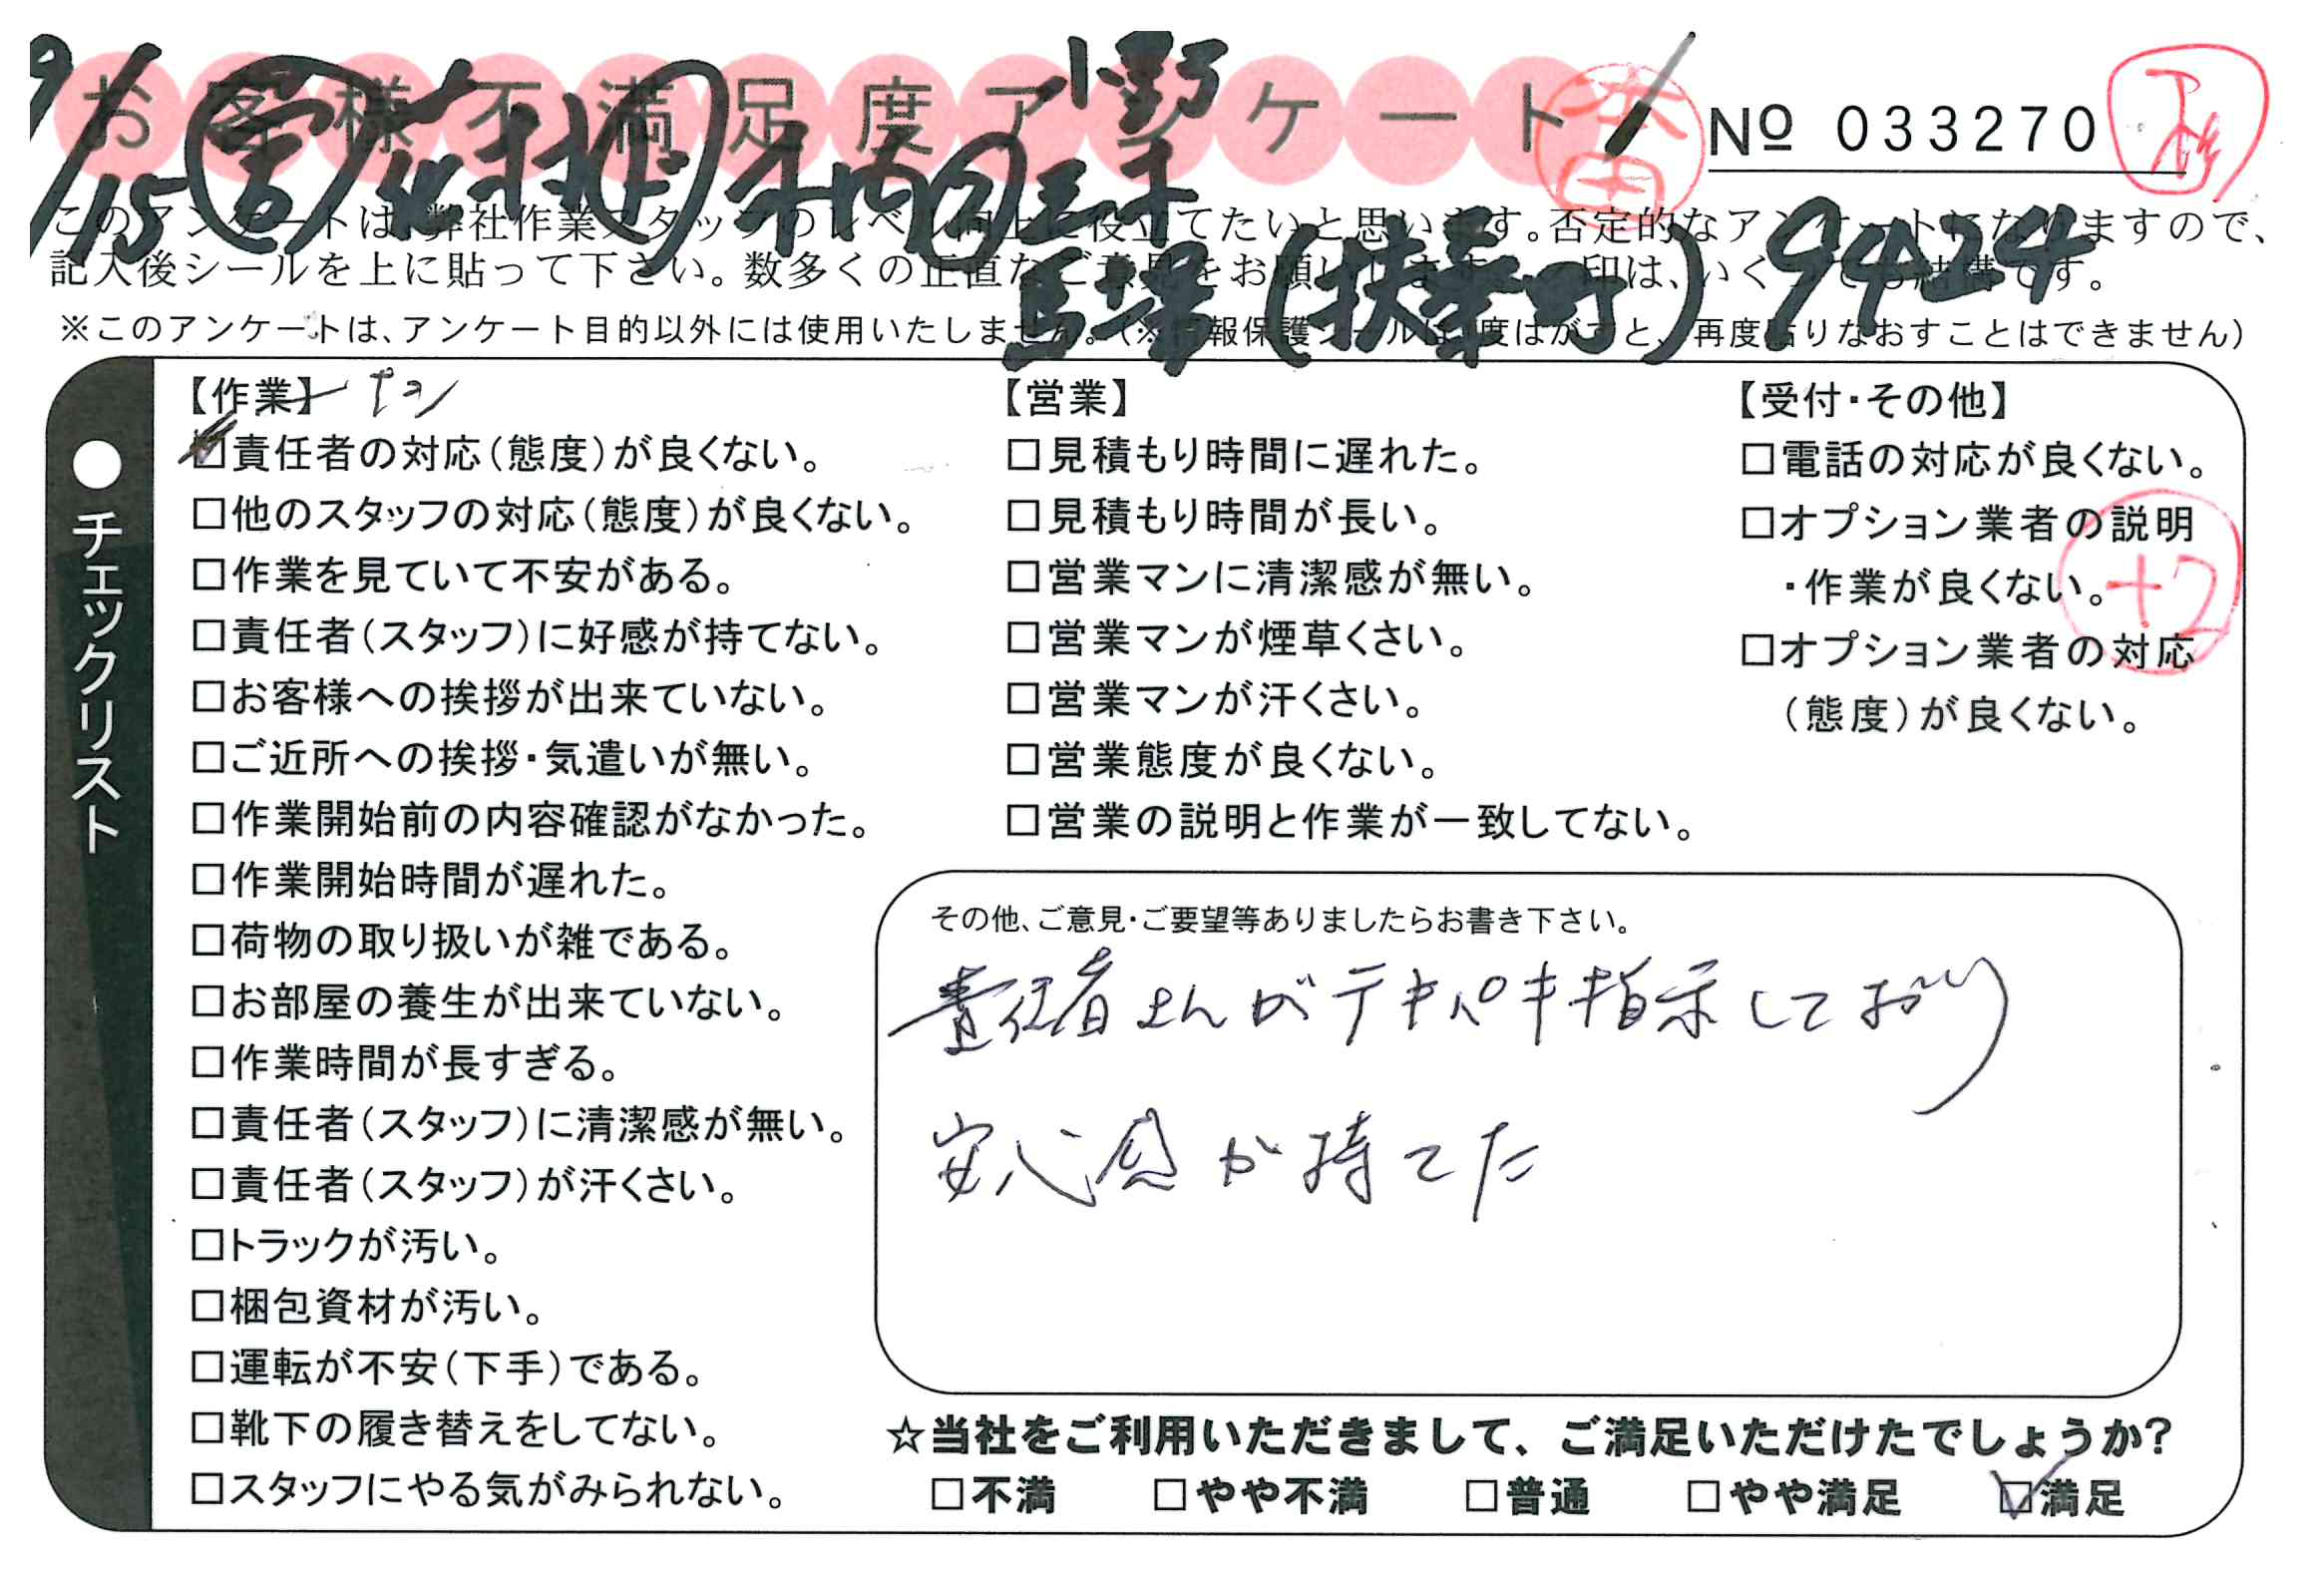 お客様不満足度アンケート
小野
本田
№ 033270
9/15
三木
馬場(扶桑町) 9424
このアンケートは、弊社作業スタッフのレベル向上に役立てたいと思います。否定的なアンケートになりますので、
記入後シールを上に貼って下さい。数多くの正直なご意見をお願いします。 印は、いくつでも結構です。
※このアンケートは、アンケート目的以外には使用いたしません。(※情報保護シールは1度はがすと、再度貼りなおすことはできません)
●チェックリスト
【作業】
☑責任者の対応(態度)が良くない。
□他のスタッフの対応(態度)が良くない。
□作業を見ていて不安がある。
□責任者(スタッフ)に好感が持てない。
□お客様への挨拶が出来ていない。
□ご近所への挨拶・気遣いが無い。
□作業開始前の内容確認がなかった。
□作業開始時間が遅れた。
□荷物の取り扱いが雑である。
□お部屋の養生が出来ていない。
□作業時間が長すぎる。
□責任者(スタッフ)に清潔感が無い。
□責任者(スタッフ)が汗くさい。
□トラックが汚い。
□梱包資材が汚い。
□運転が不安(下手)である。
□靴下の履き替えをしてない。
□スタッフにやる気がみられない。
【営業】
□見積もり時間に遅れた。
□見積もり時間が長い。
□営業マンに清潔感が無い。
□営業マンが煙草くさい。
□営業マンが汗くさい。
□営業態度が良くない。
□営業の説明と作業が一致してない。
【受付・その他】
□電話の対応が良くない。
□オプション業者の説明
・作業が良くない。
+2
□オプション業者の対応
(態度)が良くない。
その他、ご意見・ご要望等ありましたらお書き下さい。
責任者さんがテキパキ指示しており
安心感が持てた
☆当社をご利用いただきまして、ご満足いただけたでしょうか?
□不満 □やや不満 □普通 □やや満足 ☑満足